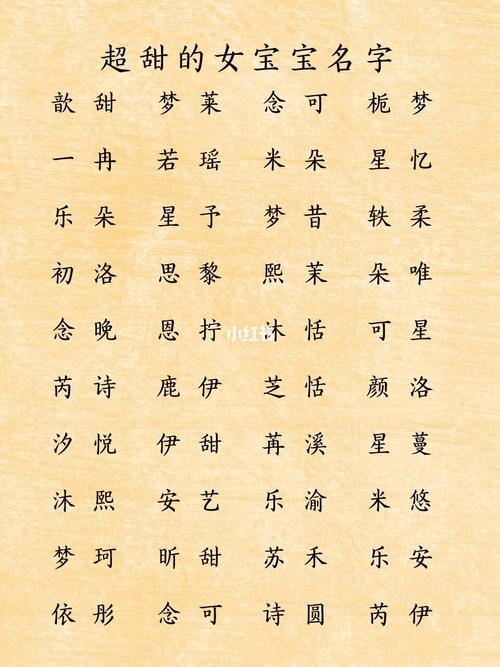 超甜的女宝宝名字
歆甜 梦莱 念可 栀梦
一冉 若瑶 米朵 星忆
乐朵 星予 梦昔 轶柔
初洛 思黎 熙茉 朵唯
念晚 恩拧 沐恬 可星
小红书
芮诗 鹿伊 芝恬 颜洛
汐悦 伊甜 苒溪 星蔓
沐熙 安艺 乐渝 米悠
梦珂 昕甜 苏禾 乐安
依彤 念可 诗圆 芮伊